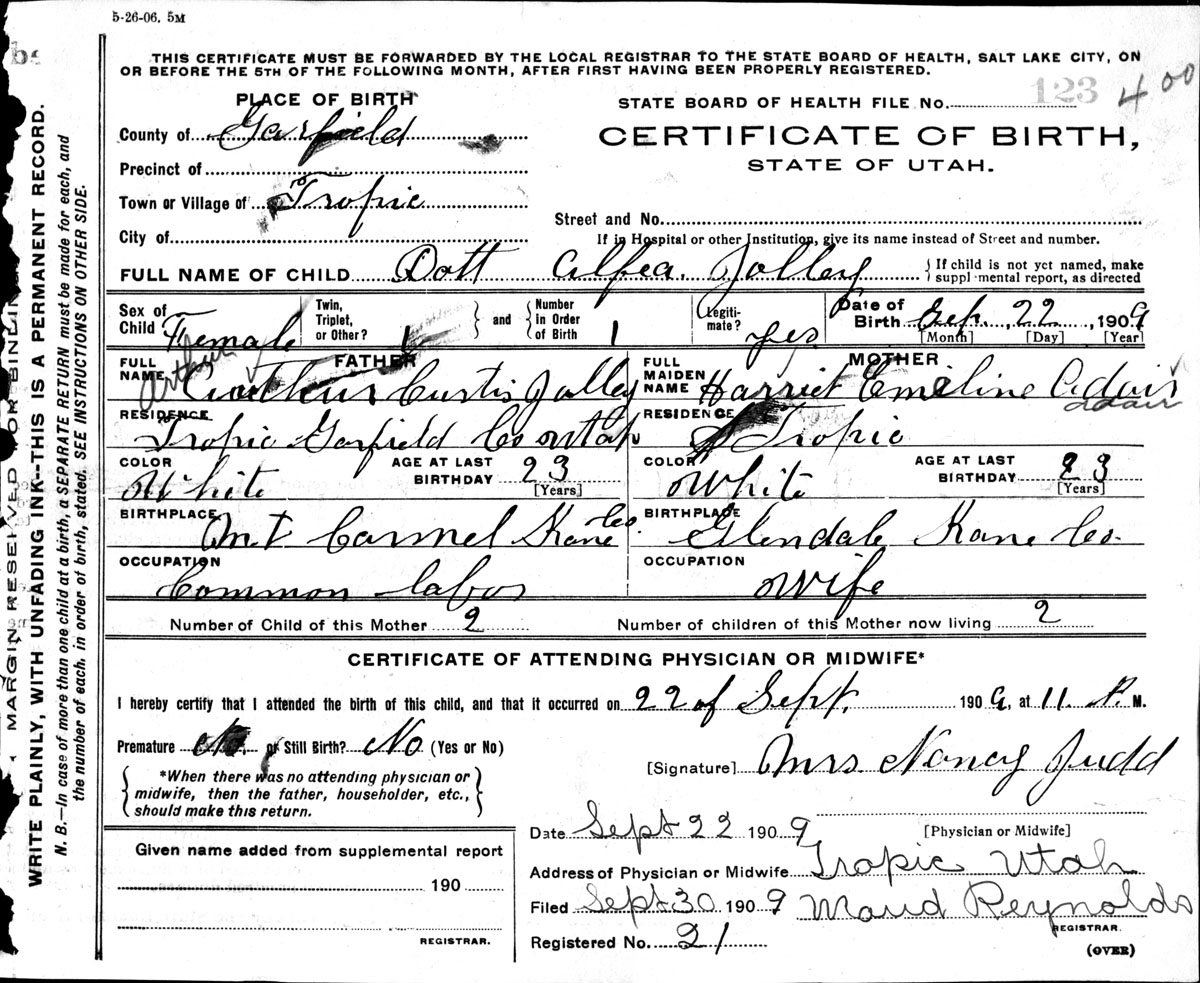 5-26-06. 5M
THIS CERTIFICATE MUST BE FORWARDED BY THE LOCAL REGISTRAR TO THE STATE BOARD OF HEALTH, SALT LAKE CITY, ON
OR BEFORE THE 5TH OF THE FOLLOWING MONTH, AFTER FIRST HAVING BEEN PROPERLY REGISTERED.
PLACE OF BIRTH
STATE BOARD OF HEALTH FILE No. 123 400
County of Garfield
CERTIFICATE OF BIRTH,
STATE OF UTAH.
Precinct of
Town or Village of Tropic
Street and No.
City of
If in Hospital or other Institution, give its name instead of Street and number.
FULL NAME OF CHILD Dott Alfea. Jolley { If child is not yet named, make
supplemental report, as directed
Sex of Child Female Twin, Triplet, or Other? 1 } and { Number in Order of Birth 1 Legiti-mate? yes Date of Birth Sep. 22, 1909
[Month] [Day] [Year]
FATHER
MOTHER
FULL NAME Arthur Curtis Jolley
Arthur
FULL MAIDEN NAME Harriet Emeline Adair
adair
RESIDENCE Tropic Garfield Co Utah
RESIDENCE Tropic
COLOR White AGE AT LAST BIRTHDAY 23 [Years]
COLOR White AGE AT LAST BIRTHDAY 23 [Years]
BIRTHPLACE Mt Carmel Kane Co.
BIRTHPLACE Glendale Kane Co.
OCCUPATION Common labor
OCCUPATION wife
Number of Child of this Mother 2 Number of children of this Mother now living 2
CERTIFICATE OF ATTENDING PHYSICIAN OR MIDWIFE*
I hereby certify that I attended the birth of this child, and that it occurred on 22 of Sept. 1909, at 11. P. M.
Premature No. or Still Birth? No (Yes or No)
*When there was no attending physician or
midwife, then the father, householder, etc.,
should make this return.
[Signature] Mrs. Nancy Judd
Date Sept 22 1909 [Physician or Midwife]
Given name added from supplemental report
190
REGISTRAR.
Address of Physician or Midwife Tropic Utah
Filed Sept 30 1909 Maud Reynolds
REGISTRAR.
Registered No. 21
(OVER)
MARGIN RESERVED FOR BINDING
WRITE PLAINLY, WITH UNFADING INK--THIS IS A PERMANENT RECORD.
N. B.—In case of more than one child at a birth, a SEPARATE RETURN must be made for each, and
the number of each, in order of birth, stated. SEE INSTRUCTIONS ON OTHER SIDE.